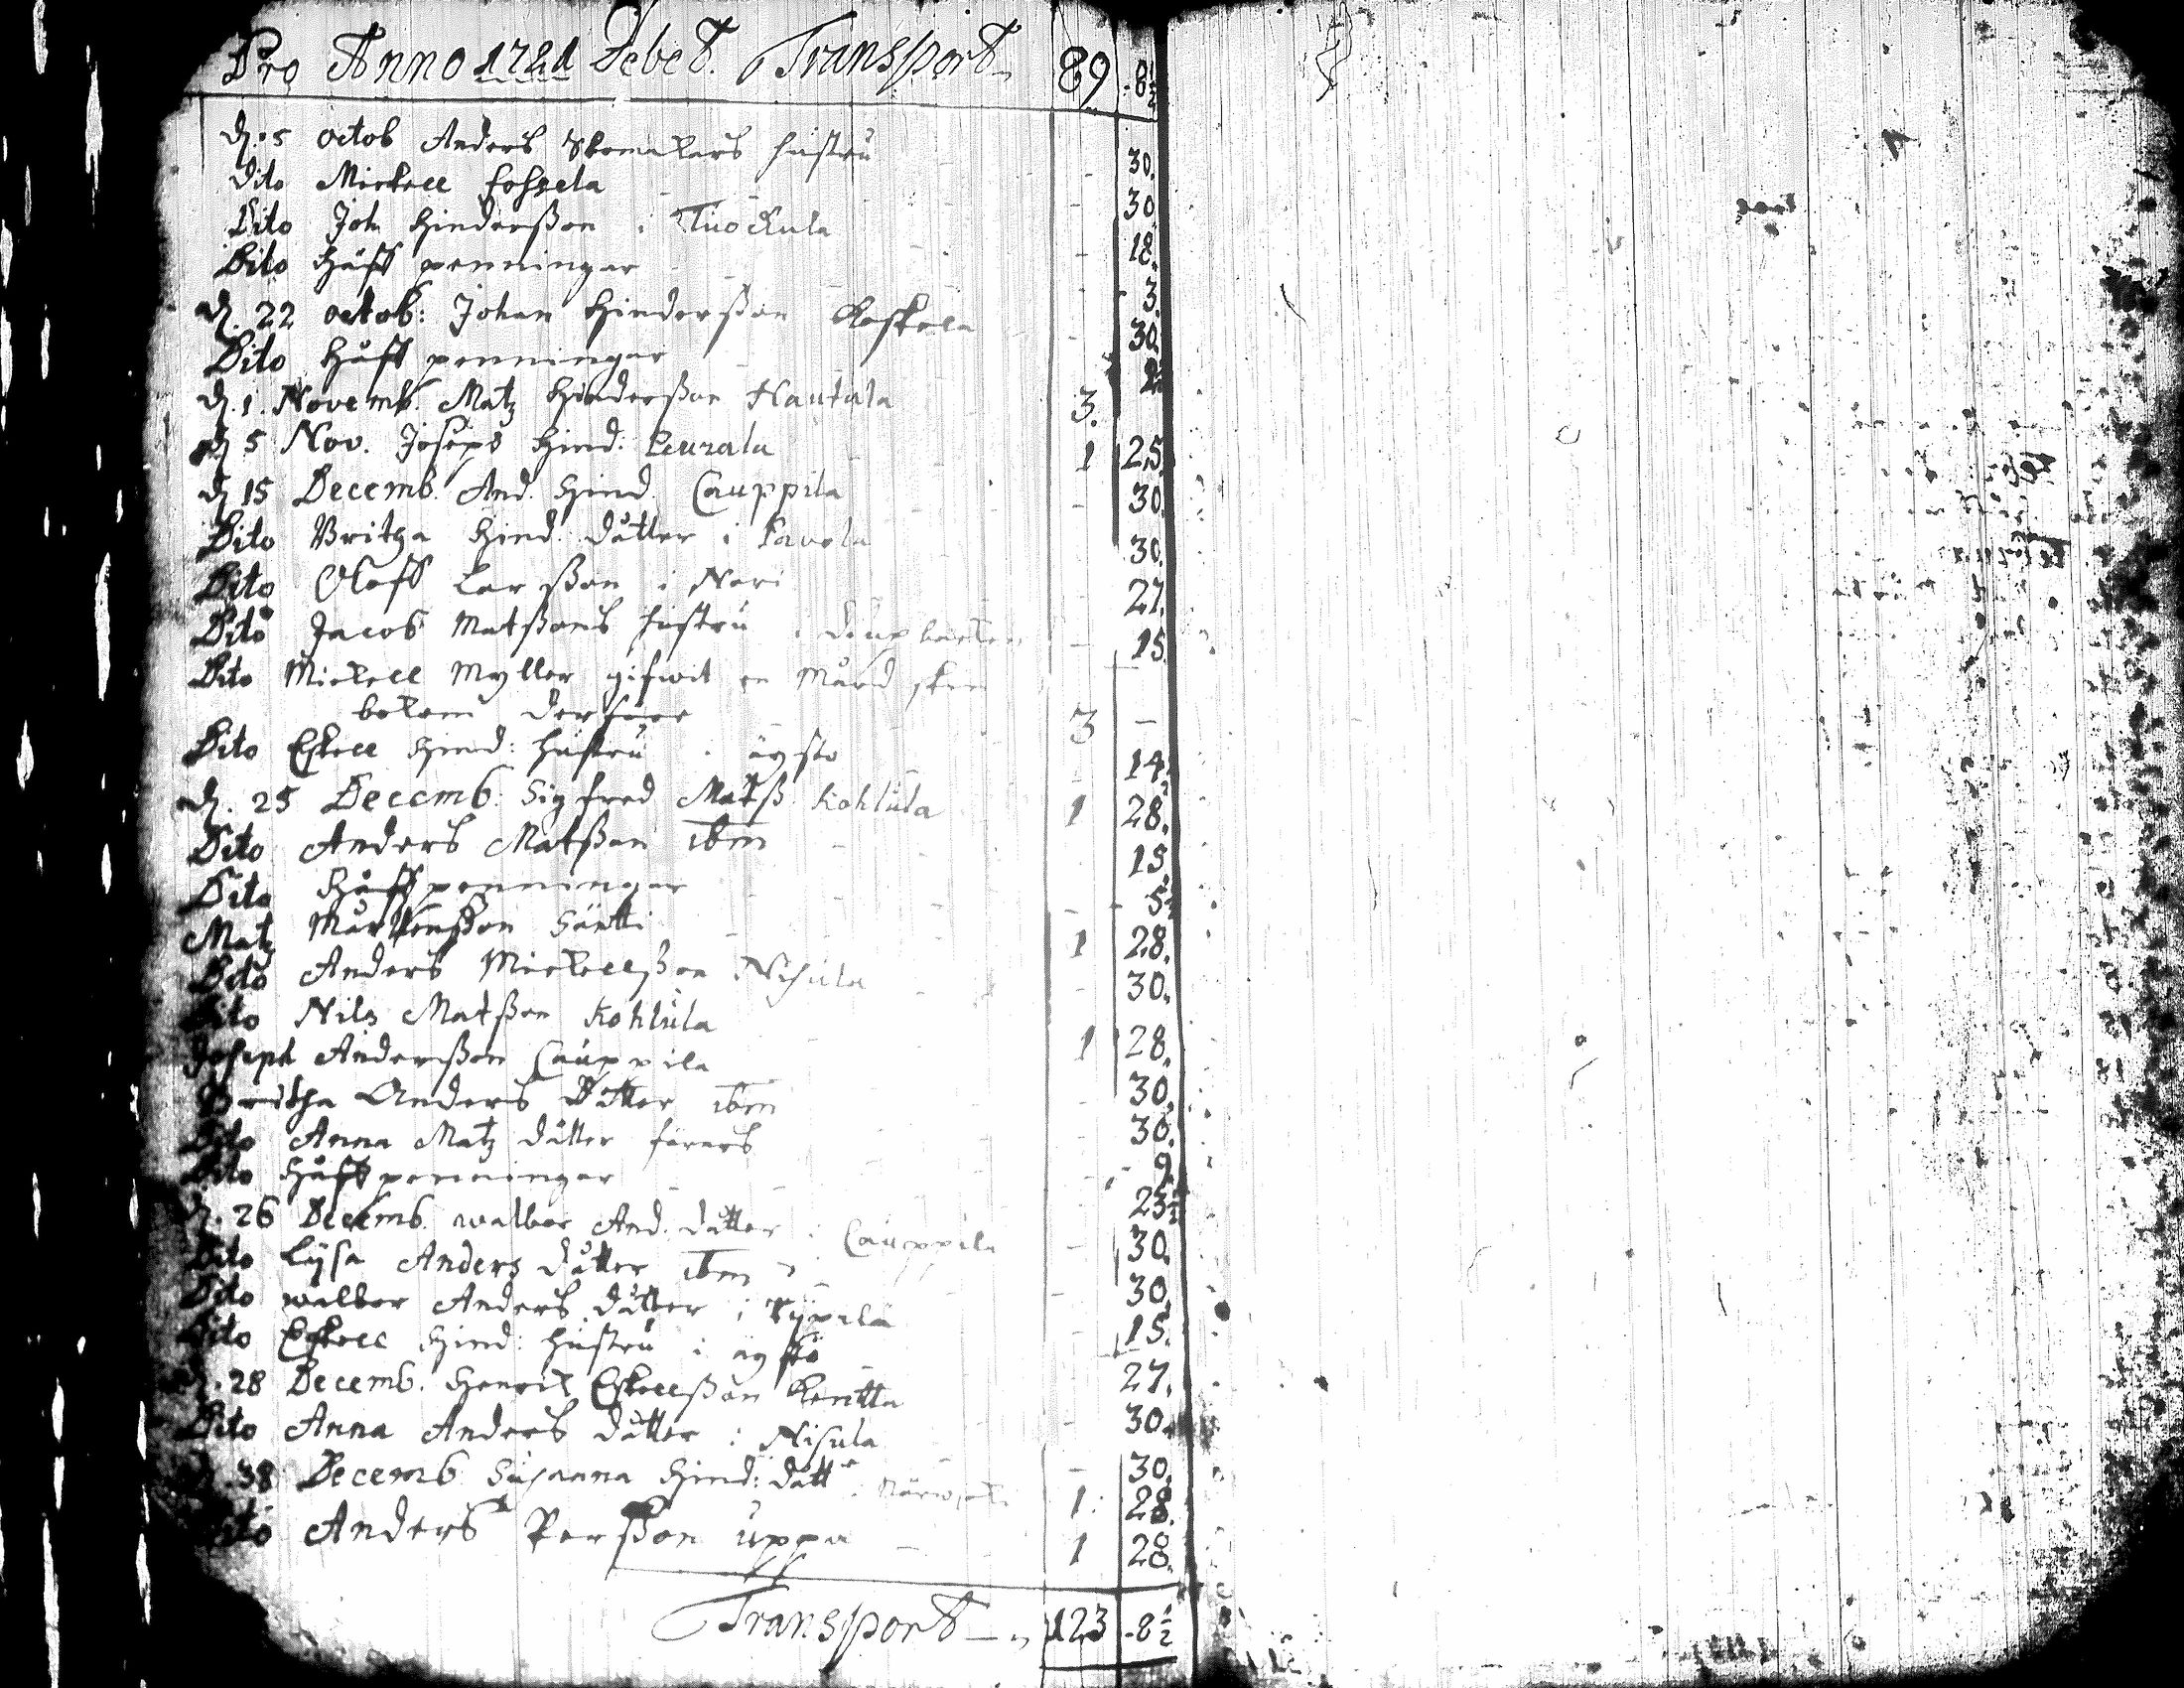 Pro Anno 1721 Debet. Transport 89 - 8 1/2
d. 5 octob Anders Skomakars hustru - 30.
Dito Mickell - 30
Dito Joh Hinderßon i Tuockula - 18.
Dito Håff penningar - 3.
d. 22 octob: Johan Hinderßon Koskela - 30.
Dito Håff penningar
d. 1. Novemb. Matz Hinderßon Hautala 3.
d 5 Nov. Joseph Hind: Leurala 1 25.
d 15 Decemb. And. Hind. Cauppila - 30.
Dito Britha Hind. dåtter i Pavola 30.
Dito Oloff Larßon i Neri 27.
Dito Jacob Matßons hustru i - 15.
Dito Mickell Myller gifwit en Mård sken
bekom derföre 3 -
Dito Eskell Hind: hustru i äysto - 14.
d. 25 Decemb: Sigfred Matß. Kohlula 1 28.
Dito Anders Matßon ibm 15.
Dito Håff penningar - 5
Matz Mårtenßon Säntti 1 28.
Dito Anders Mickellßon Nisula - 30.
Dito Nils Matßon Kohlula 1 28.
Joseph Anderßon Cauppila - 30.
Britha Anders Dåtter ibm - 30.
Dito Anna Matz dåtter - 9
Dito Håff penningar 23 1/2
d. 26 Decemb. walbor And. dåtter i Cauppila - 30.
Dito Lysa Anders dåtter ibm 30.
Dito walbor Anders dåtter i - 15.
Dito Eskell Hind: hustru i äystö 27.
d. 28 Decemb. Henrik Eskellßon Kentta 30.
Dito Anna Anders dåtter i Nisula - 30.
38 Decemb Susanna Hind: dått 1: 28.
Dito Anders Perßon uppa 1 28.
Transport 123 - 8 1/2